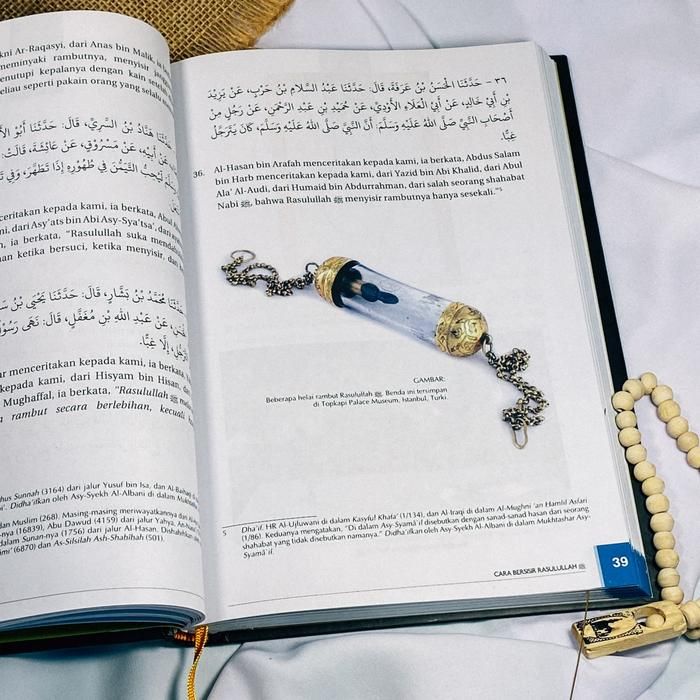 kni Ar-Raqasyi, dari Anas bin Malik, ia
meminyaki rambutnya, menyisir
menutupi kepalanya dengan kain
beliau seperti pakain orang yang selalu
هَنَّادُ بْنُ السَّرِيِّ، قَالَ: حَدَّثَنَا أَبُو
عَنْ أَبِيهِ، عَنْ مَسْرُوْقٍ، عَنْ عَائِشَةَ، قَالَتْ:
لَيُحِبُّ التَّيَمُّنَ فِي طُهُوْرِهِ إِذَا تَطَهَّرَ، وَفِي
ceritakan kepada kami, ia berkata,
dari Asy'ats bin Abi Asy-Sya'tsa',
ia berkata, "Rasulullah suka
an ketika bersuci, ketika menyisir,
مُحَمَّدُ بْنُ بَشَّارٍ، قَالَ: حَدَّثَنَا يَحْيَى بْنُ
عَنْ عَبْدِ اللهِ بْنِ مُغَفَّلٍ، قَالَ: نَهَى
إِلَّا غِبًّا.
ar menceritakan kepada kami, ia berkata,
kepada kami, dari Hisyam bin Hisan,
Mughaffal, ia berkata, "Rasulullah ﷺ
rambut secara berlebihan, kecuali
hus Sunnah (3164) dari jalur Yusuf bin Isa, dan
Didha'ifkan oleh Asy-Syekh Al-Albani di dalam
dan Muslim (268). Masing-masing meriwayatkannya dari
nya (16839), Abu Dawud (4159) dari jalur Yahya,
dalam Sunan-nya (1756) dari jalur Al-Hasan.
(6870) dan As-Silsilah Ash-Shahihah (501).
٣٦ - حَدَّثَنَا الْحَسَنُ بْنُ عَرَفَةَ، قَالَ: حَدَّثَنَا عَبْدُ السَّلَامِ بْنُ حَرْبٍ، عَنْ يَزِيْدَ
بْنِ أَبِي خَالِدٍ، عَنْ أَبِي الْعَلَاءِ الْأَوْدِيِّ، عَنْ حُمَيْدِ بْنِ عَبْدِ الرَّحْمَنِ، عَنْ رَجُلٍ مِنْ
أَصْحَابِ النَّبِيِّ صَلَّى اللهُ عَلَيْهِ وَسَلَّمَ: أَنَّ النَّبِيَّ صَلَّى اللهُ عَلَيْهِ وَسَلَّمَ، كَانَ يَتَرَجَّلُ
غِبًّا.
36. Al-Hasan bin Arafah menceritakan kepada kami, ia berkata, Abdus Salam
bin Harb menceritakan kepada kami, dari Yazid bin Abi Khalid, dari Abul
Ala' Al-Audi, dari Humaid bin Abdurrahman, dari salah seorang shahabat
Nabi ﷺ, bahwa Rasulullah ﷺ menyisir rambutnya hanya sesekali."⁵
GAMBAR:
Beberapa helai rambut Rasulullah ﷺ. Benda ini tersimpan
di Topkapi Palace Museum, Istanbul, Turki.
5 Dha'if. HR Al-Ujluwani di dalam Kasyful Khafa' (1/134), dan Al-Iraqi di dalam Al-Mughni 'an Hamlil Asfari
(1/86). Keduanya mengatakan, "Di dalam Asy-Syamâ'il disebutkan dengan sanad-sanad hasan dari seorang
shahabat yang tidak disebutkan namanya." Didha'ifkan oleh Asy-Syekh Al-Albani di dalam Mukhtashar Asy-
Syamâ'il.
CARA BERSISIR RASULULLAH ﷺ
39